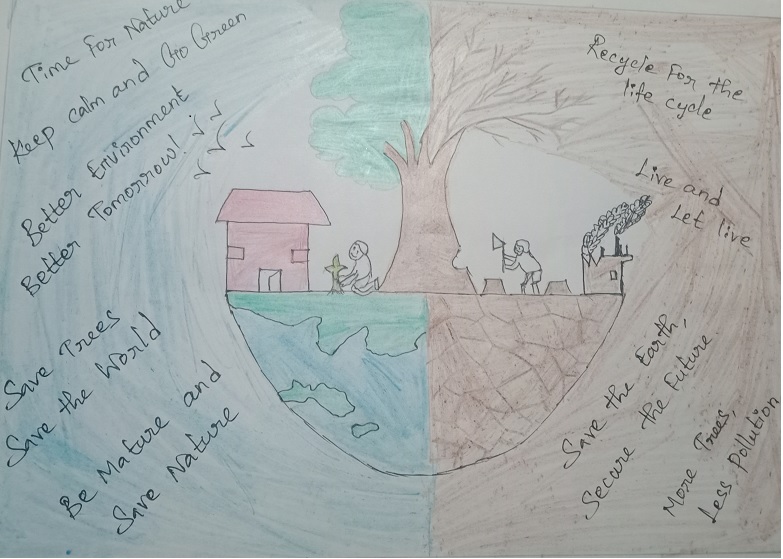 Time For Nature
Keep calm and Go Green
Better Environment
Better Tomorrow!
Save Trees
Save the World
Be Mature and
Save Nature
Recycle For the
life cycle
Live and
Let live
Save the Earth,
Secure the Future
More Trees,
Less Pollution